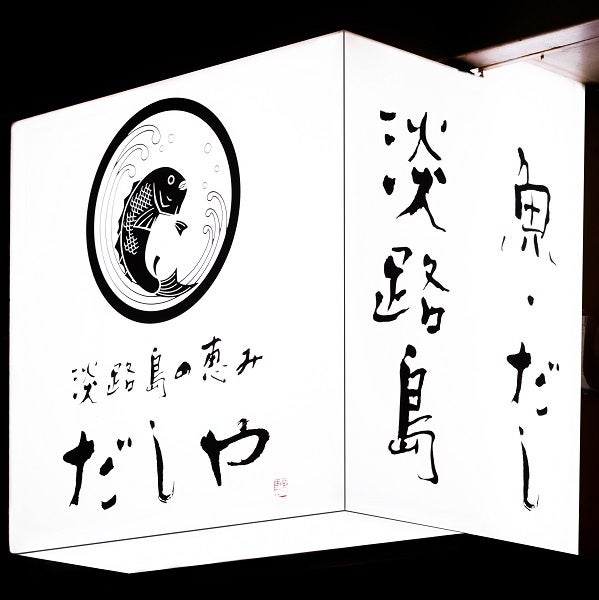 淡路島の恵み
だしや
淡路島
魚・だし